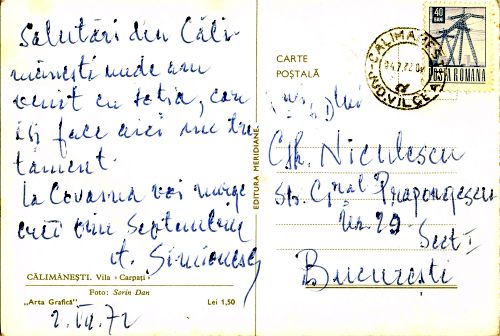 Salutări din Căli-
mănești unde am
venit cu soția, care
își face aici un tra-
tament.
La Covasna voi merge
prin Septembrie
A. Simionescu
CĂLIMĂNEȘTI. Vila „Carpați”
Foto: Sorin Dan
„Arta Grafică” Lei 1,50
2.VII.72
EDITURA MERIDIANE
CARTE
POȘTALĂ
CALIMANESTI
JUD. VILCEA
40
BANI
POSTA ROMANA
Gh. Niculescu
Str. G-ral Praporgescu
Nr. 29
Sect I
București